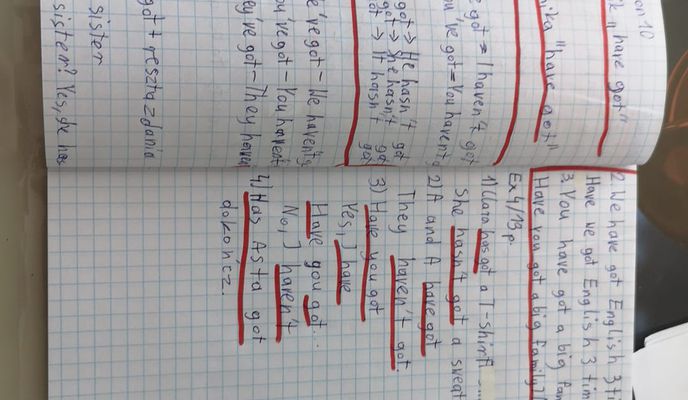 on 10
"have got"
"have got"
got = I haven't got
've got = You haven't
got → He hasn't got
got → She hasn't
→ It hasn't
've got - We haven't
've got - You haven't
've got - They haven
got + reszta zdania
sister
sister? Yes, she has
2. We have got English 3 ti
Have we got English 3 tim
3. You have got a big fam
Have you got a big family?
Ex 4/13 p.
1) Clara has got a T-shirt
She hasn't got a sweat
2) A and A have got
They haven't got.
3) Have you got
Yes, I have
Have you got...
No, I haven't
4) Has Asta got
dokończ.